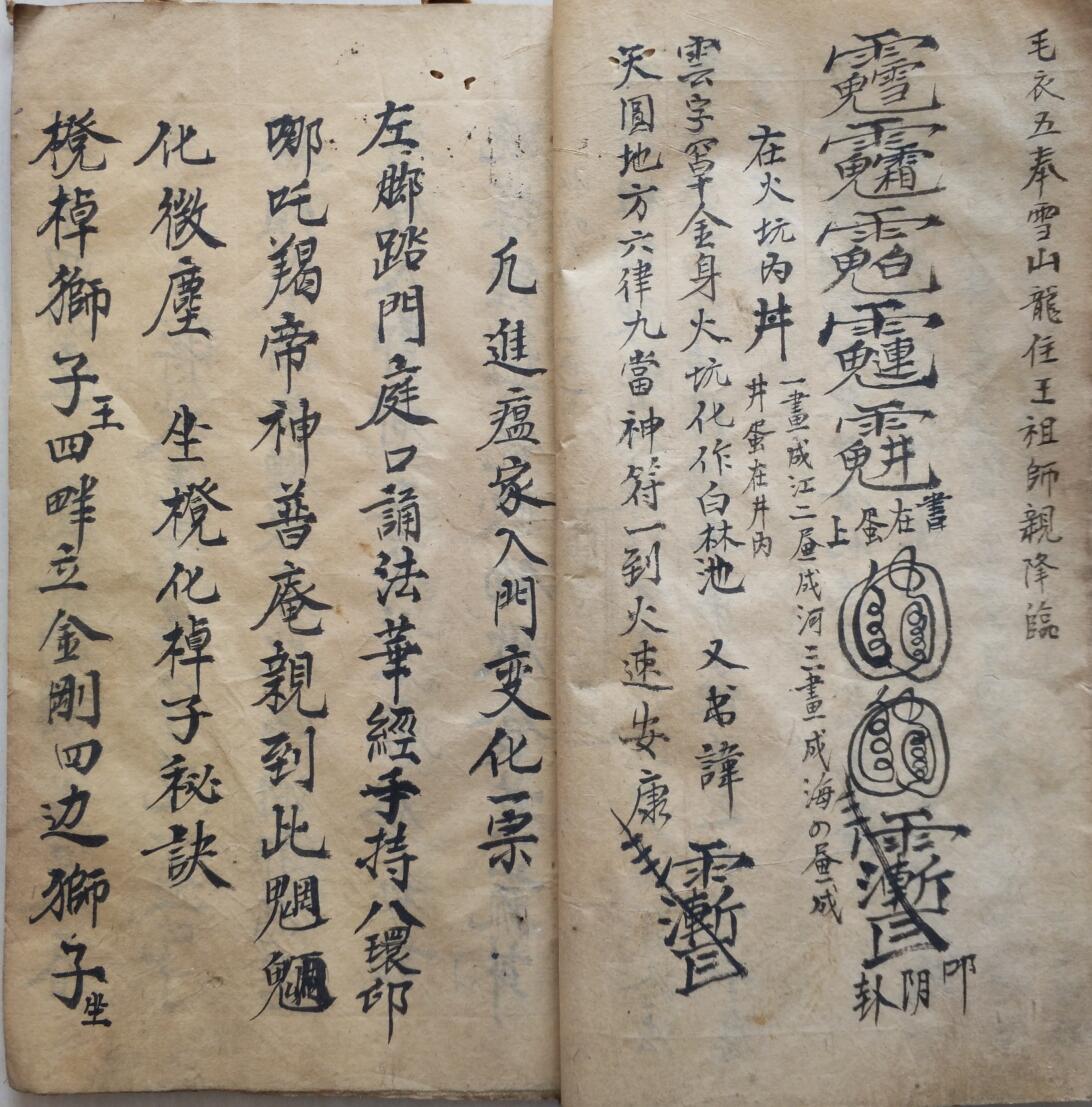 毛衣五奉雪山龍住王祖師親降臨
書在蛋上
叩阴卦
在火坑內井
一畫成江二畫成河三畫成海の畫成
井蛋在井內
雲字罩金身火坑化作白林池 又书諱
天圓地方六律九當神符一到火速安康
凢進瘟家入門变化票
左脚踏門庭口誦法華經手持八環印
哪吒羯帝神普庵親到此魍魎
化微塵 坐櫈化棹子秘訣
櫈棹獅子王四畔立金剛四边獅子坐